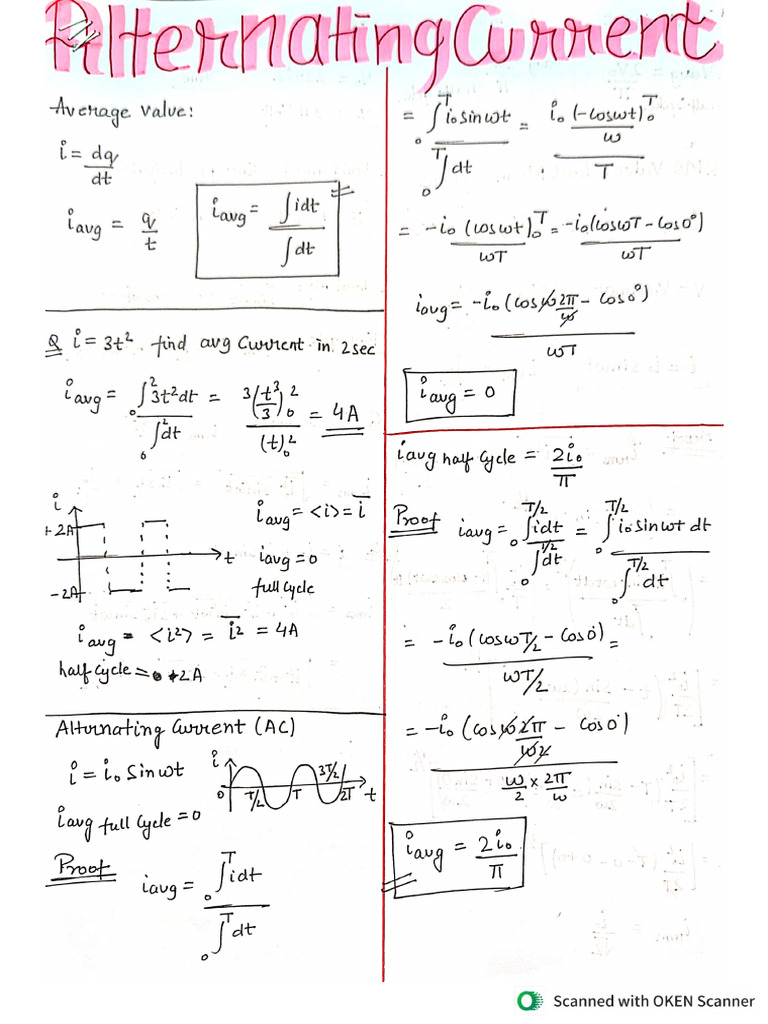 Alternating Current
Average value:
i = dq/dt
i avg = q/t
i avg = ∫idt / ∫dt
Q i = 3t² find avg Current in 2sec
i avg = ₀∫² 3t²dt / ₀∫² dt = 3(t³/3)₀² / (t)₀² = 4A
i
+2A
-2A
t
i avg = <i> = i̅
i avg = 0
full cycle
i avg = <i²> = i̅² = 4A
half cycle = +2A
Alternating Current (AC)
i = i₀ Sinωt
i avg full Cycle = 0
i
0 T/2 T 3T/2 2T t
Proof
i avg = ₀∫ᵀ idt / ₀∫ᵀ dt
= ₀∫ᵀ i₀ sinωt / ₀∫ᵀ dt = i₀ (-cosωt)₀ᵀ/ω / T
= -i₀ (cosωt)₀ᵀ / ωT = -i₀(cosωT - Cos0°) / ωT
i avg = -i₀ (cos ω 2π/ω - Cos0°) / ωT
i avg = 0
i avg half Cycle = 2i₀/π
Proof i avg = ₀∫^T/2 idt / ₀∫^T/2 dt = ₀∫^T/2 i₀ sinωt dt / ₀∫^T/2 dt
= -i₀ (cosωT/2 - Cos0°) / ωT/2 =
= -i₀ (cos ω 2π/ω2 - Cos0°) / ω/2 × 2π/ω
i avg = 2i₀/π
Scanned with OKEN Scanner